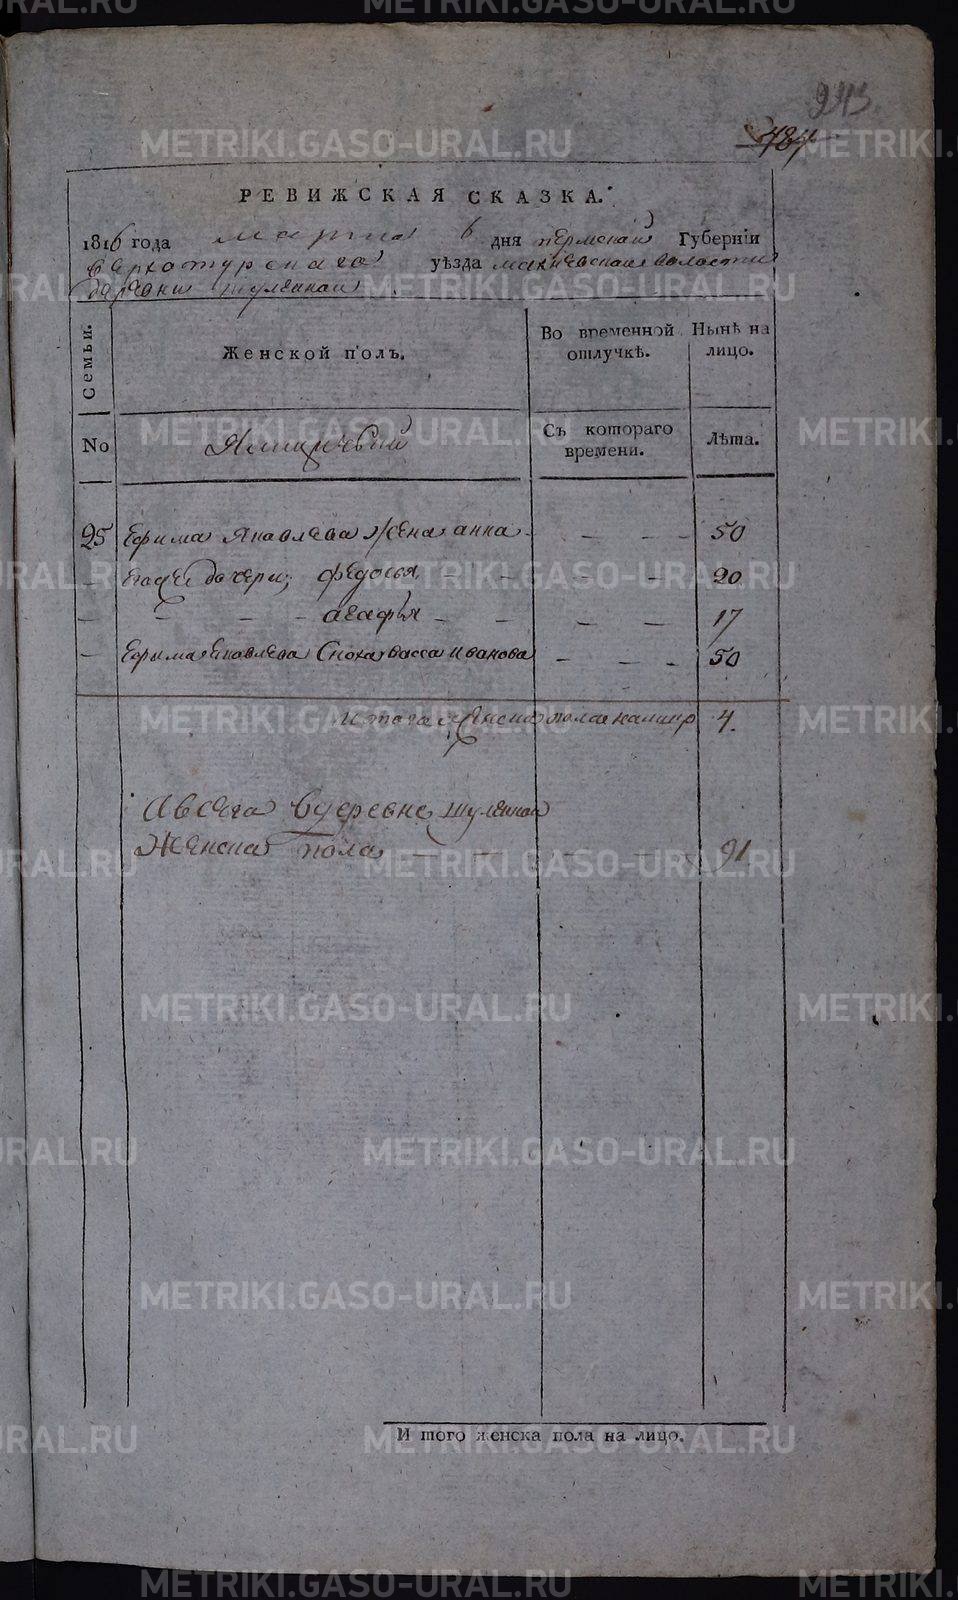 243
484
РЕВИЖСКАЯ СКАЗКА.
1816 года марта 6 дня пермской Губерніи
верхотурскаго уѣзда махневской волости
деревни шуленкой
Семьи.
Женской полъ.
Во временной отлучкѣ.
Нынѣ на лицо.
No
Ямщичьий
Съ котораго времени.
Лѣта.
25 Ефима Яковлева Жена анна - - - - 50
- Ево же дочери; федосья - - - - 20
- - - - агафья - - - - 17
- Ефима Яковлева Сноха васса иванова - - - 50
итого женска пола налицо 4.
Авсего вдеревне шуленкой
Женска пола - - - - 91
И того женска пола на лицо.
METRIKI.GASO-URAL.RU